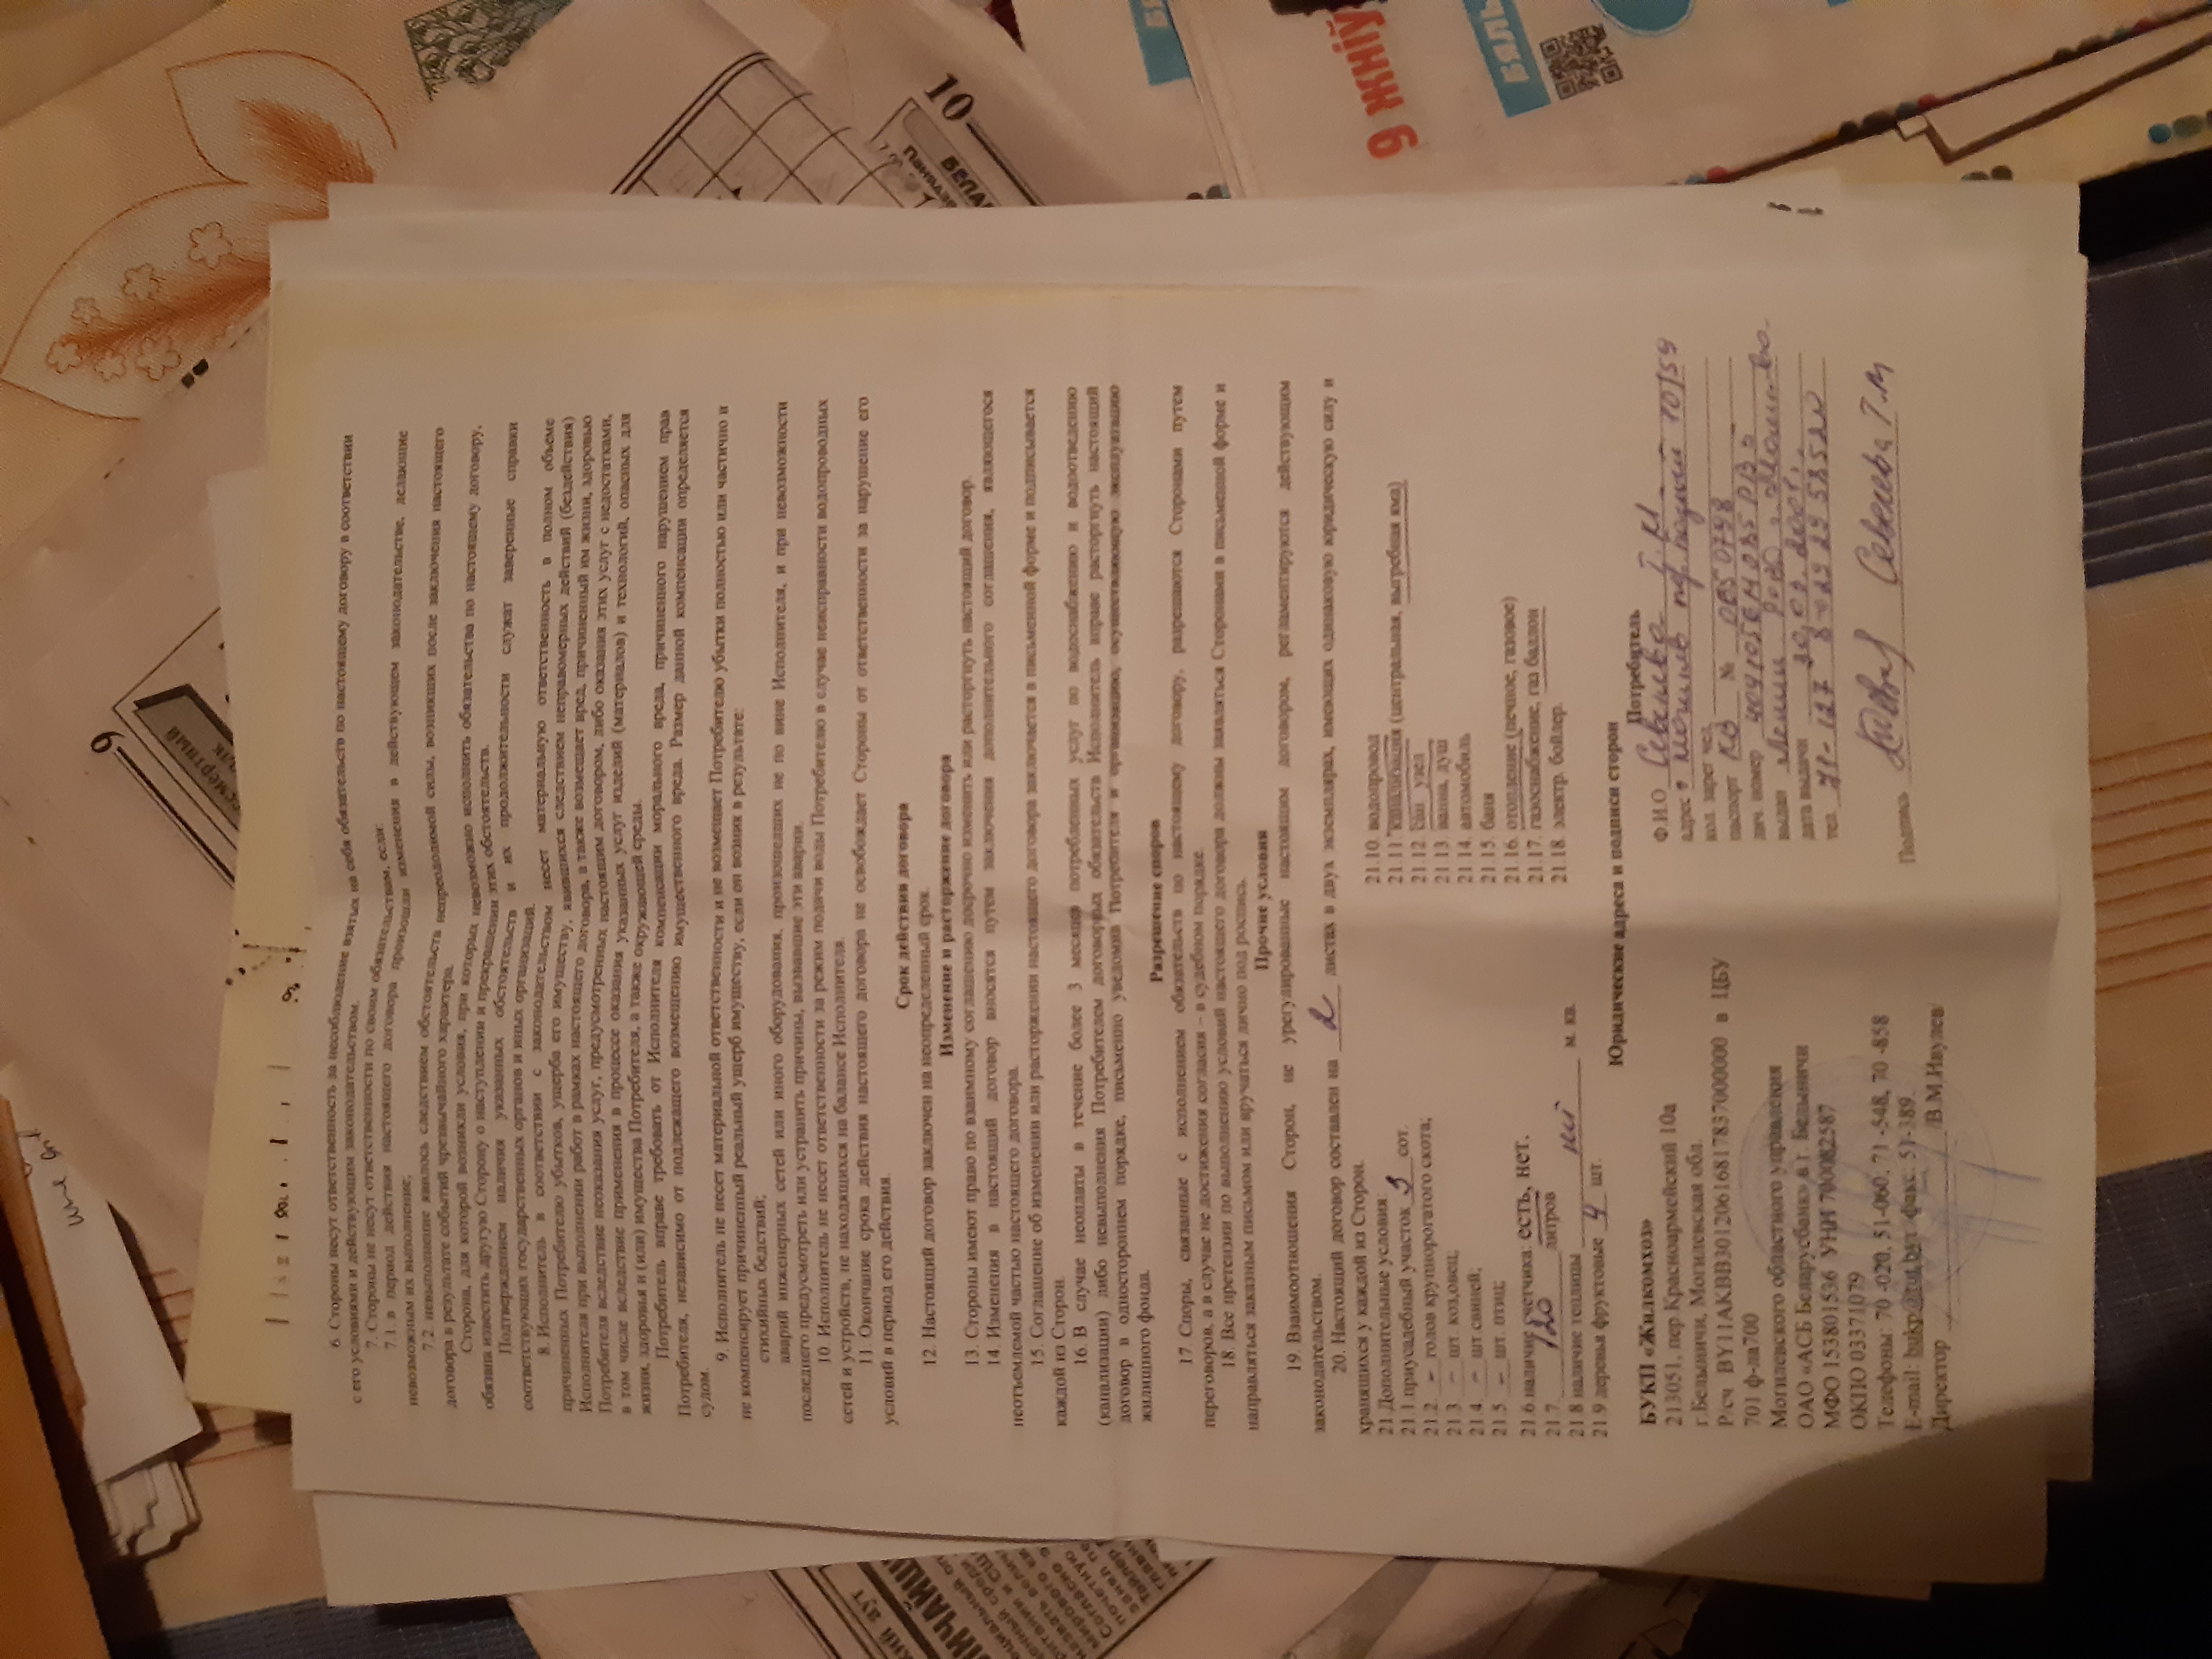 6. Стороны несут ответственность за несоблюдение взятых на себя обязательств по настоящему договору в соответствии
с его условиями и действующим законодательством.
7. Стороны не несут ответственности по своим обязательствам, если:
7.1. в период действия настоящего договора произошли изменения в действующем законодательстве, делающие
невозможным их выполнение;
7.2. невыполнение явилось следствием обстоятельств непреодолимой силы, возникших после заключения настоящего
договора в результате событий чрезвычайного характера.
Сторона, для которой возникли условия, при которых невозможно исполнить обязательства по настоящему договору,
обязана известить другую Сторону о наступлении и прекращении этих обстоятельств.
Подтверждением наличия указанных обстоятельств и их продолжительности служат заверенные справки
соответствующих государственных органов и иных организаций.
8. Исполнитель в соответствии с законодательством несет материальную ответственность в полном объеме
причиненных Потребителю убытков, ущерба его имуществу, явившихся следствием неправомерных действий (бездействия)
Исполнителя при выполнении работ в рамках настоящего договора, а также возмещает вред, причиненный им жизни, здоровью
Потребителя вследствие неоказания услуг, предусмотренных настоящим договором, либо оказания этих услуг с недостатками,
в том числе вследствие применения в процессе оказания указанных услуг изделий (материалов) и технологий, опасных для
жизни, здоровья и (или) имущества Потребителя, а также окружающей среды.
Потребитель вправе требовать от Исполнителя компенсации морального вреда, причиненного нарушением прав
Потребителя, независимо от подлежащего возмещению имущественного вреда. Размер данной компенсации определяется
судом.
9. Исполнитель не несет материальной ответственности и не возмещает Потребителю убытки полностью или частично и
не компенсирует причиненный реальный ущерб имуществу, если он возник в результате:
стихийных бедствий;
аварий инженерных сетей или иного оборудования, произошедших не по вине Исполнителя, и при невозможности
последнего предусмотреть или устранить причины, вызвавшие эти аварии.
10 Исполнитель не несет ответственности за режим подачи воды Потребителю в случае неисправности водопроводных
сетей и устройств, не находящихся на балансе Исполнителя.
11. Окончание срока действия настоящего договора не освобождает Стороны от ответственности за нарушение его
условий в период его действия.
Срок действия договора
12. Настоящий договор заключен на неопределенный срок.
Изменение и расторжение договора
13. Стороны имеют право по взаимному соглашению досрочно изменить или расторгнуть настоящий договор.
14. Изменения в настоящий договор вносятся путем заключения дополнительного соглашения, являющегося
неотъемлемой частью настоящего договора.
15. Соглашение об изменении или расторжении настоящего договора заключается в письменной форме и подписывается
каждой из Сторон.
16. В случае неоплаты в течение более 3 месяцев потребленных услуг по водоснабжению и водоотведению
(канализации) либо невыполнения Потребителем договорных обязательств Исполнитель вправе расторгнуть настоящий
договор в одностороннем порядке, письменно уведомив Потребителя и организацию, осуществляющую эксплуатацию
жилищного фонда.
Разрешение споров
17. Споры, связанные с исполнением обязательств по настоящему договору, разрешаются Сторонами путем
переговоров, а в случае не достижения согласия – в судебном порядке.
18. Все претензии по выполнению условий настоящего договора должны заявляться Сторонами в письменной форме и
направляться заказным письмом или вручаться лично под роспись.
Прочие условия
19. Взаимоотношения Сторон, не урегулированные настоящим договором, регламентируются действующим
законодательством.
20. Настоящий договор составлен на 2 листах в двух экземплярах, имеющих одинаковую юридическую силу и
хранящихся у каждой из Сторон.
21 Дополнительные условия:
21.1.приусадебный участок 3 сот.
21.2. – голов крупнорогатого скота;
21.3 – шт колодовец;
21.4. – шт свиней;
21.5 – шт. птиц;
21.6 наличие счетчика: есть, нет.
21.7 120 литров
21.8 наличие теплицы м. кв.
21.9 деревья фруктовые 4 шт.
21.10. водопровод
21.11 канализация (центральная, выгребная яма)
21.12 сан. узел
21.13 ванна, душ
21.14. автомобиль
21.15. баня
21.16. отопление (печное, газовое)
21.17. газоснабжение, газ баллон
21.18. электр. бойлер.
Юридические адреса и подписи сторон
БУКП «Жилкомхоз»
213051, пер Красноармейский 10а
г.Белыничи, Могилевская обл.
Р/сч BY11AKBB30120616817837000000 в ЦБУ
701 ф-ла700
Могилевского областного управления
ОАО «АСБ Беларусбанк» в г. Белыничи
МФО 153801536 УНП 700082587
ОКПО 03371079
Телефоны: 70 -020, 51-060, 71 -548, 70 -858
E-mail: bukp@tut.by. факс: 51-389.
Директор /В.М.Ивулев/
Потребитель
Ф.И.О
адрес г Могилев 10/59
кол. зарег чел.
паспорт КВ № 0850798
лич. номер
выдан Ленин РОВД г. Могилева
дата выдачи
тел 8-029
Подпись
9 ЖНІЎ
10
9
БЕЛА